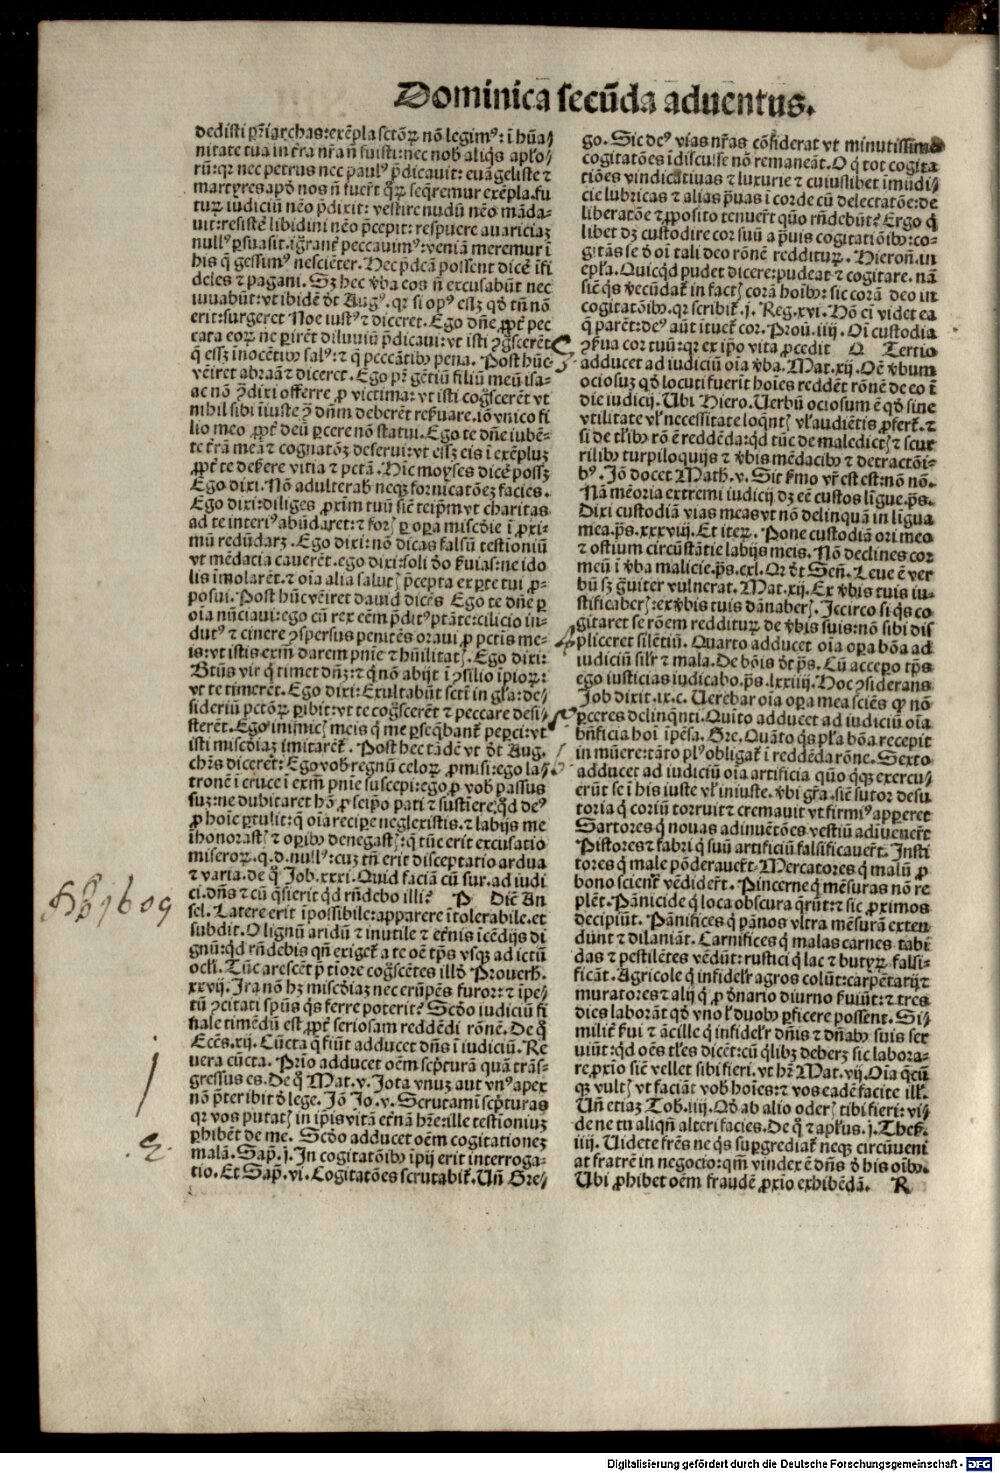 Dominica secūda aduentus.
dedisti pr̄iarchas: exēpla sctōꝝ nō legimꝰ: ī hūa/
nitate tua in tr̄a nr̄a nō fuisti: nec nob̄ aliqͥs apl̄o/
rū: qꝛ nec petrus nec paulꝰ p̄dicauit: euāgeliste ⁊
martyres apd̓ nos nō fuerūt qͦꝝ seq̄remur exēpla. fu
turū iudiciū nēo p̄dixit: vestire nudū nēo māda-
uit: resistē libidini nēo p̄cepit: respuere auariciaꝫ
nullꝰ ꝑsuasit. ignorāter peccauimꝰ: veniā meremur ī
his q̄ gessimꝰ nesciēter. Hec p̄dcā possent dicē īfi
deles ⁊ pagani. Sꝫ hec v̓ba eos nō excusabūt nec
iuuabūt: vt ibidē dt̄ Augꝰ. qꝛ si opꝰ eēꝫ qd̓ tn̄ nō
erit: surgeret Noe iustꝰ ⁊ diceret. Ego dn̄e ꝓpt̄ pec
cata eoꝝ ne perirēt diluuiū p̄dicaui: vt isti ꝯgscerēt
q̄ eēꝫ inocētiū salꝰ: ⁊ q̄ peccātiū pena. Post hūc
veniret abraā ⁊ diceret. Ego pr̄ gētiū filiū meū isa-
ac nō ꝯdixi offerre ꝓ victima: vt isti cogscerēt vt
nihil sibi īiuste ꝯ dn̄m deberēt reẜuare. iō vnico fi
lio meo ꝓpt̄ deū ꝑcere nō statui. Ego te dn̄e iubē-
te tr̄am meā ⁊ cognatōꝫ deserui: vt eēꝫ eis ī exēpluꝫ
ꝓpt̄ te deẜere vitia ⁊ pctā. Hic moyses dicē possꝫ
Ego dixi. Nō adulterab̄ neqꝫ fornicatōeꝫ facies.
Ego dixi: diliges ꝓximū tuū sic̄ teip̄m vt charitas
ad te interiꝰ abūdaret: ⁊ foris ꝑ oꝑa miscd̓ie ī ꝓxi-
mū redūdarꝫ. Ego dixi: nō dicas falsū testioniū
vt mēdacia cauerēt. ego dixi: soli deo ẜuias: ne ido
lis imolarēt. ⁊ oīa alia saluti p̄cepta ex ꝑte tui ꝓ-
posui. Post hūc vēiret dauid dicēs Ego te dn̄e ꝑ
oīa nūciaui: ego cū rex eēm p̄ditꝰ ptāte: cilicio in-
dutꝰ ⁊ cinere ꝯspersus penitēs oraui ꝓ pctis me-
is: vt istis exm̄ darem pnīe ⁊ hūilitatꝭ. Ego dixi:
Btūs vir q̄ timet dnꝫ: ⁊ q̄ nō abijt ī ꝯsilio īpioꝝ:
vt te timerēt. Ego dixi: Exultabūt sctī in gl̄a: de-
sideriū pctōꝝ ꝑibit: vt te cogscerēt ⁊ peccare desi-
sterēt. Ego inimicis meis q̄ me ꝑseq̄banꝉ peꝑci: vt
isti miscd̓iaꝫ imitarēꝉ. Post hec tādē vt dt̄ Aug.
chr̄s diceret: Ego vob̄ regnū celoꝝ ꝓmisi: ego la/
tronē ī cruce ī exm̄ pnīe suscepi: ego ꝓ vob̄ passus
suꝫ: ne dubitaret hō ꝓ seip̄o pati ⁊ sustiere: qd̓ deꝰ
ꝓ hoīe ꝑtulit: q̄ oīa recipe neglexistis. ⁊ labijs me
īhonorastꝭ ⁊ oꝑibꝫ denegastꝭ: q̄ tūc erit excusatio
miseroꝝ. q. d. nullꝰ: cuꝫ tn̄ erit disceptatio ardua
⁊ varia. de q̄ Job. xxxi. Quid faciā cū sur. ad iudi
ci. dn̄s ⁊ cū q̄sierit qd̓ rn̄debo illi? P Dic̄ An
sel. Latere erit īpossibile: apparere ītolerabile. et
subdit. O lignū aridū ⁊ inutile ⁊ et̄nis īcēdijs di
gnū: qd̓ rn̄debis qn̄ exigeꝉ a te oē tp̄s vsqꝫ ad ictū
ocĺi. Tūc arescēt p̄ tiore cogscētes illd̓ Prouerb̄.
xxvij. Ira nō hꝫ miscd̓iaꝫ nec erūpēs furor: ⁊ īpe/
tū ꝯcitati spūs qͥs ferre poterit? Scd̓o iudiciū fi
nale timēdū est ꝓpt̄ seriosam reddēdi rōnē. De q̄
Eccēs. xij. Cūcta q̄ fiūt adducet dn̄s ī iudiciū. Re
vera cūcta. Prio adducet oēm scp̄turā quā trās-
gressus es. De q̄ Mat. v. Jota vnuꝫ aut vnꝰ apex
nō p̄teribit d̓ lege. Jō Jo. v. Scrutamī scp̄turas
qꝛ vos putatꝭ in ip̄is vitā et̄nā hr̄e: ille testioniuꝫ
ꝑhibēt de me. Scd̓o adducet oēm cogitationeꝫ
malā. Sap̄. j. In cogitatōibꝫ īpij erit interroga-
tio. Et Sap̄. vi. Cogitatōes scrutabiꝉ. Vn̄ Gre/
go. Sic deꝰ vias nr̄as cōsiderat vt minutissime
cogitatōes īdiscusse nō remaneāt. O q̄ tot cogita
tiōes vindicatiuas ⁊ luxurie ⁊ cuiuslibet īmūdi/
cie lubricas ⁊ alias p̄uas ī corde cū delectatōe: de
liberatōe ⁊ ꝓposito tenuerūt quō rn̄debūt? Ergo q̄
libet dꝫ custodire cor suū a p̄uis cogitatiōibꝫ: co-
gitās se d̓ oī tali deo rōnē redditurꝫ. Hieron. in
epl̄a. Quicqd̓ pudet dicere: pudeat ⁊ cogitare. nā
sic̄ qͥs v̓ecūdaꝉ in factꝭ corā hoībꝫ: sic corā deo in
cogitatōibꝫ. qꝛ scribiꝉ. j. Reg. xvi. Hō cī videt ea
q̄ parēt: deꝰ aūt ītueꝉ cor. Prou. iiij. Oī custodia
ꝯẜua cor tuū: qꝛ ex ip̄o vita ꝓcedit Q Tertio
adducet ad iudiciū oīa v̓ba. Mat. xij. Oē v̓bum
ociosuꝫ qd̓ locuti fuerit hoīes reddēt rōnē de eo ī
die iudicij. Ubi Hiero. Uerbū ociosum ē qd̓ sine
vtilitate vĺ necessitate loqntꝭ vĺ audiētis ꝓferꝉ. ⁊
si de tĺibꝫ rō ē reddēda: qd̓ tūc de maledictꝭ ⁊ scur
rilibꝫ turpiloquijs ⁊ v̓bis mēdacibꝫ ⁊ detractōi-
bꝰ. Jō docet Math. v. Sit ẜmo vr̄ est est: nō nō.
Nā mēoria extremi iudicij dꝫ eē custos līgue. p̄s.
Dixi custodiā vias meas vt nō delinquā in līgua
mea. p̄s. xxxviij. Et iteꝝ. Pone custodiā ori meo
⁊ ostium circūstātie labijs meis. Nō declines cor
meū ī v̓ba malicie. p̄s. cxl. Qꝛ dt̄ Sen̄. Leue ē ver
bū sꝫ gͣuiter vulnerat. Mat. xij. Ex v̓bis tuis iu-
stificaberꝭ: ex v̓bis tuis dānaberꝭ. Iccirco si qͥs co
gitaret se rōem redditurꝫ de v̓bis suis: nō sibi dis
pliceret silētiū. Quarto adducet oīa oꝑa bōa ad
iudiciū siĺr ⁊ mala. De bōis dt̄ p̄s. Cū accepero tp̄s
ego iusticias iudicabo. p̄s. lxxiiij. Hoc ꝯsiderans
Job dixit. ix. c. Uerebar oīa oꝑa mea sciēs ꝙ nō
ꝑceres delinqnti. Quito adducet ad iudiciū oīa
bn̄ficia hoī īpēsa. Gre. Quāto qͥs pĺa bōa recepit
in mūere: tāto plꝰ obligaꝉ ī reddēda rōne. Sexto
adducet ad iudiciū oīa artificia quō qͥqꝫ exercu/
erūt se ī his iuste vĺ iniuste. v̓bi gr̄a. sic̄ sutor desu
toria q̄ coriū torruit ⁊ cremauit vt firmiꝰ apꝑeret
Sartores q̄ nouas adinuētōes vestiū adīuenerūt
Pistores ⁊ fabri q̄ suū artificiū falsificauerūt. Insti
tores q̄ male pōderauerūt. Mercatores q̄ malū ꝓ
bono scienter vēdiderūt. Pincerne q̄ mēsuras nō re
plēt. Pānicide q̄ loca obscura q̄rūt: ⁊ sic ꝓximos
decipiūt. Pānifices q̄ pānos vltra mēsurā exten
dunt ⁊ dilaniāt. Carnifices q̄ malas carnes tabi
das ⁊ pestilētes vēdūt: rustici q̄ lac ⁊ butyrꝫ falsi-
ficāt. Agricole q̄ infideĺr agros colūt: carpētarij ⁊
muratores ⁊ alij q̄ ꝓ d̓nario diurno ẜuiūt: ⁊ tres
dies laborāt qd̓ vno vĺ duobꝫ ꝑficere possent. Si-
militer ẜui ⁊ ācille q̄ infideĺr dn̄is ⁊ dn̄abꝫ suis ser
uiūt: qd̓ oēs tĺes dicēt: cū qͥlibꝫ deberꝫ sic labora-
re ꝓxio sic̄ vellet sibi fieri. vt hr̄ Mat. vij. Oīa q̄cū
qꝫ vultꝭ vt faciāt vob̄ hoīes: ⁊ vos eadē facite illꝭ.
Vn̄ etiaꝫ Tob. iiij. Qd̓ ab alio oderꝭ tibi fieri: vi/
de ne tu aliqn̄ alteri facies. De q̄ ⁊ apĺus. j. Theẜ.
iiij. Uidete fr̄es ne qͥs suꝑgrediaꝉ neqꝫ circūueni
at fratrē in negocio: qm̄ vindex ē dn̄s d̓ his oībꝫ.
Ubi ꝓhibet oēm fraudē ꝓxio exhibēdā. R
1609
1
2
3
4
5
6
Digitalisierung gefördert durch die Deutsche Forschungsgemeinschaft - DFG